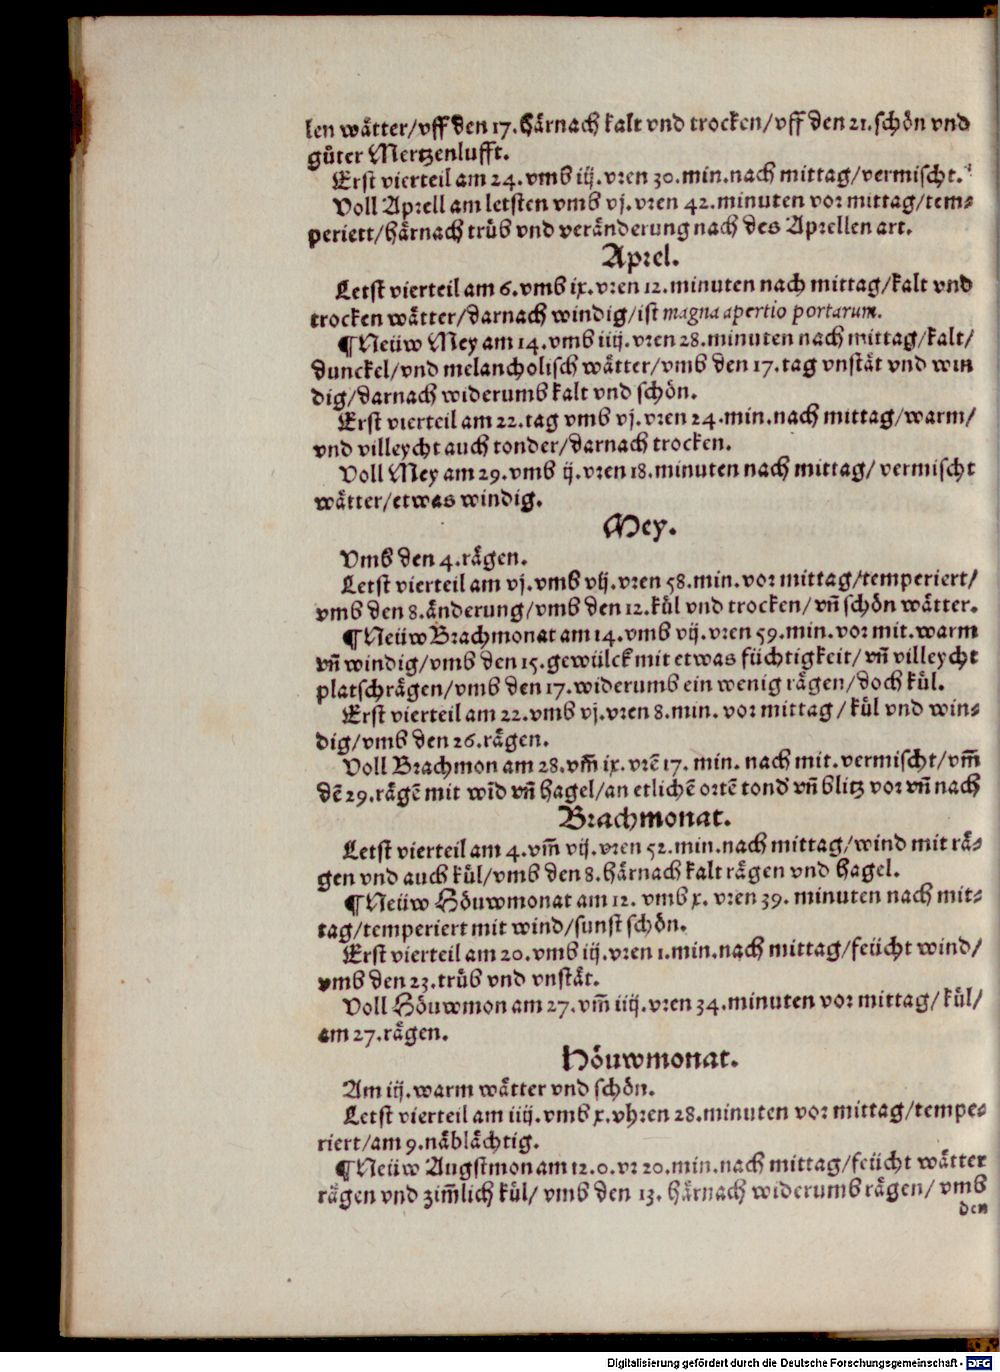 len wåtter/vff den 17. hårnach kalt vnd trocken/vff den 21. schön vnd
gůter Mertzenlufft.
Erst vierteil am 24. vmb iij. vren 30. min. nach mittag/vermischt.
Voll Aprell am letsten vmb vj. vren 42. minuten vor mittag/tem⸗
periett/hårnach trüb vnd verånderung nach des Aprellen art.
Aprel.
Letst vierteil am 6. vmb ix. vren 12. minuten nach mittag/kalt vnd
trocken wåtter/darnach windig/ist magna apertio portarum.
¶ Neüw Mey am 14. vmb iiij. vren 28. minuten nach mittag/kalt/
dunckel/vnd melancholisch wåtter/vmb den 17. tag vnståt vnd win
dig/darnach widerumb kalt vnd schön.
Erst vierteil am 22. tag vmb vj. vren 24. min. nach mittag/warm/
vnd villeycht auch tonder/darnach trocken.
Voll Mey am 29. vmb ij. vren 18. minuten nach mittag/ vermischt
wåtter/etwas windig.
Mey.
Vmb den 4. rågen.
Letst vierteil am vj. vmb vij. vren 58. min. vor mittag/temperiert/
vmb den 8. ånderung/vmb den 12. kůl vnd trocken/ vñ schön wåtter.
¶ Neüw Brachmonat am 14. vmb vij. vren 59. min. vor mit. warm
vñ windig/vmb den 15. gewülck mit etwas füchtigkeit/ vñ villeycht
platschrågen/vmb den 17. widerumb ein wenig rågen/doch kůl.
Erst vierteil am 22. vmb vj. vren 8. min. vor mittag / kůl vnd win⸗
dig/vmb den 26. rågen.
Voll Brachmon am 28. vm̃ ix. vrē 17. min. nach mit. vermischt/vm̃
dē 29. rågē mit wīd vñ hagel/an etlichē ortē tond' vñ blitz vor vñ nach
Brachmonat.
Letst vierteil am 4. vm̃ vij. vren 52. min. nach mittag/wind mit rå⸗
gen vnd auch kůl/vmb den 8. hårnach kalt rågen vnd hagel.
¶ Neüw Höuwmonat am 12. vmb x. vren 39. minuten nach mit⸗
tag/temperiert mit wind/sunst schön.
Erst vierteil am 20. vmb iij. vren 1. min. nach mittag/feücht wind/
vmb den 23. trüb vnd vnståt.
Voll Höuwmon am 27. vm̃ iiij. vren 34. minuten vor mittag/ kůl/
am 27. rågen.
Höuwmonat.
Am iij. warm wåtter vnd schön.
Letst vierteil am iiij. vmb x. vhren 28. minuten vor mittag/tempe⸗
riert/am 9. nåblåchtig.
¶ Neüw Augstmon am 12. o. vr 20. min. nach mittag/feücht wåtter
rågen vnd zim̃lich kůl/ vmb den 13. hårnach widerumb rågen/ vmb
den
Digitalisierung gefördert durch die Deutsche Forschungsgemeinschaft - DFG